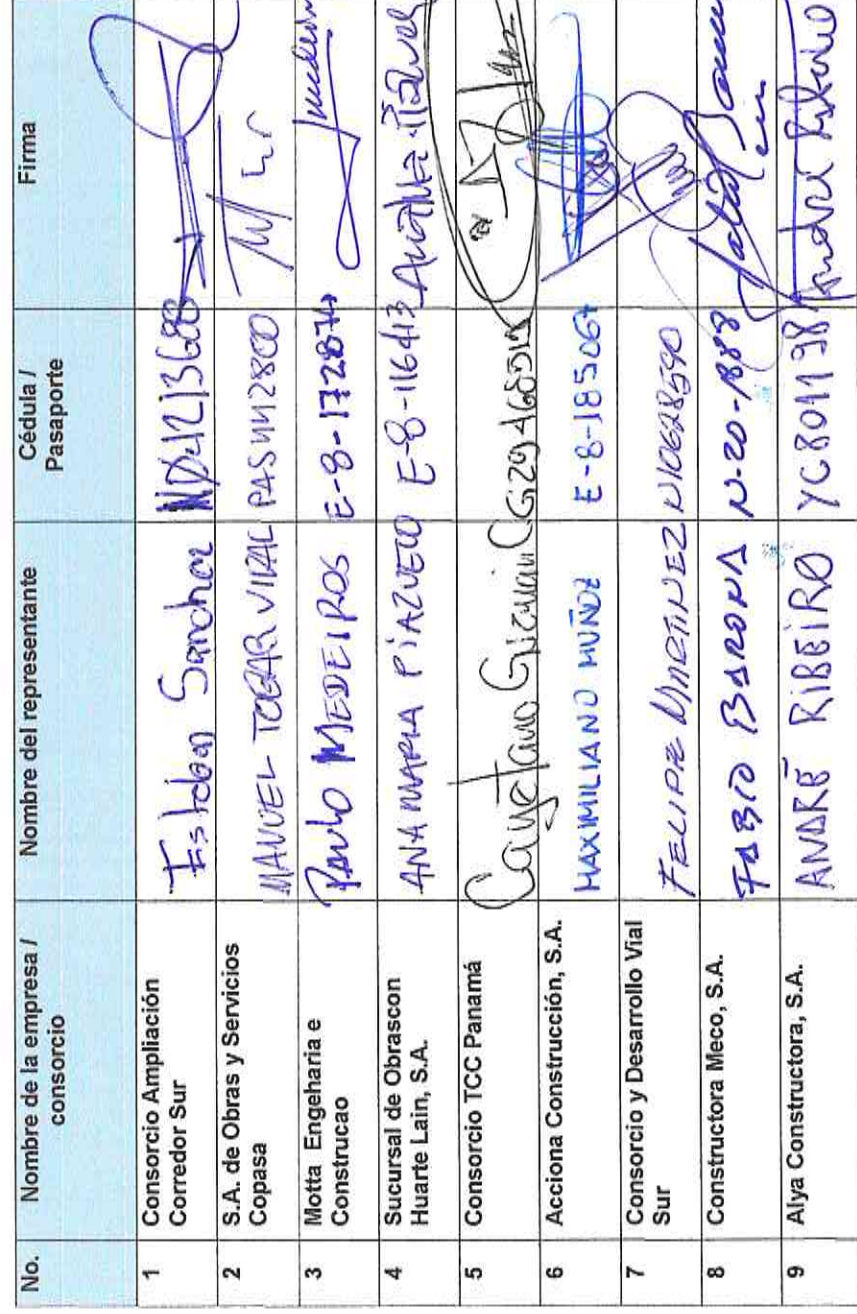 No. Nombre de la empresa / consorcio Nombre del representante Cédula / Pasaporte Firma
1 Consorcio Ampliación Corredor Sur Esteban Sanchez
2 S.A. de Obras y Servicios Copasa MANUEL VIDAL
3 Motta Engeharia e Construcao Paulo MEDEIROS E-8-172874
4 Sucursal de Obrascon Huarte Lain, S.A. ANA MARIA PIAZUELO E-8-116413
5 Consorcio TCC Panamá Cayetano
6 Acciona Construcción, S.A. MAXIMILIANO MUÑOZ E-8-185067
7 Consorcio y Desarrollo Vial Sur FELIPE MARTINEZ
8 Constructora Meco, S.A. FABIO BARONA N-20-1888
9 Alya Constructora, S.A. ANDRÉ RIBEIRO YC801198 André Ribeiro